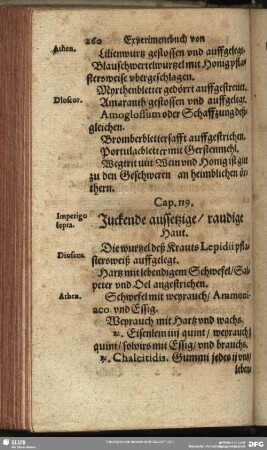 260 Experimentbuch von
Athen.
Lilienwurtz gestossen vnd auffgelegt.
Blauschwertelwurtzel mit Honig pfla-
stersweise vbergeschlagen.
Myrthenbletter gedörrt auffgestrewt.
Dioscor.
Amaranth gestossen vnd auffgelegt.
Amoglossum oder Schaffzung deß-
gleichen.
Bromberblettersafft auffgestrichen.
Portulacbletter mit Gerstenmehl.
Wegerit mit Wein vnd Honig ist gut
zu den Geschweren an heimblichen ör-
thern.
Cap. 119.
Impetigo
lepra.
Juckende aussetzige/ raudige
Haut.
Die wurtzel deß Krauts Lepidii pfla-
Dioscor.
stersweiß auffgelegt.
Hartz mit lebendigem Schwefel/ Sal-
peter vnd Oel angestrichen.
Athen.
Schwefel mit weyrauch/ Ammoni-
aco vnd Essig.
Weyrauch mit Hartz vnd wachs.
quint/ solvirs mit Essig/ vnd brauchs.
℞. Chalcitidis. Gummi jedes ij vntz/
leben-
SLUB
DFG